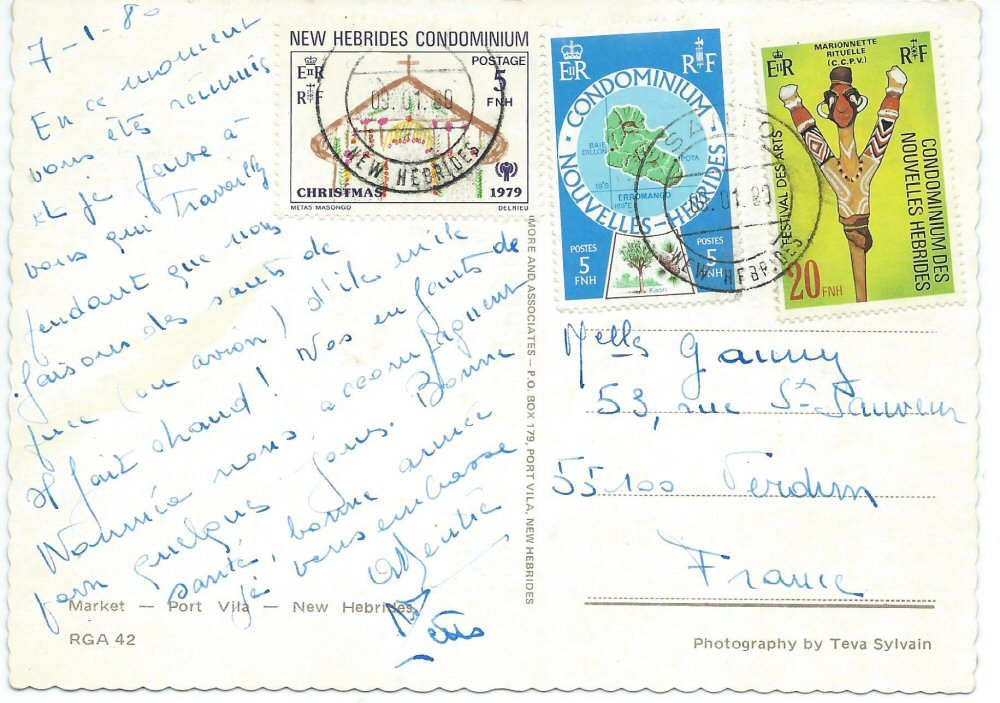 7-1-80
En ce moment
vous êtes réunis
et je pense à
vous qui travaillez
pendant que nous
faisons des sauts de
puce (en avion) d'île en île
Il fait chaud! Nos enfants de
Nouméa nous accompagnent
pour quelques jours. Bonne
santé, bonne année
je vous embrasse
Market – Port Vila – New Hebrides
RGA 42
(MORE AND ASSOCIATES – P.O. BOX 179, PORT VILA, NEW HEBRIDES
NEW HEBRIDES CONDOMINIUM
POSTAGE
5
FNH
E II R
R F
CHRISTMAS 1979
METAS MASONGO DELRIEU
09.01.80
NEW HEBRIDES
E II R R F
CONDOMINIUM
NOUVELLES-HEBRIDES
BAIE DILLON
POTA
19°S
ERROMANGO
169°E
POSTES 5 FNH
POSTES 5 FNH
Kaori
09.01.80
NEW HEBRIDES
MARIONNETTE
RITUELLE
(C.C.P.V.)
E II R R F
FESTIVAL DES ARTS
CONDOMINIUM DES
NOUVELLES HEBRIDES
20 FNH
Melles Ganny
53, rue St-Sauveur
55100 Verdun
France
Photography by Teva Sylvain